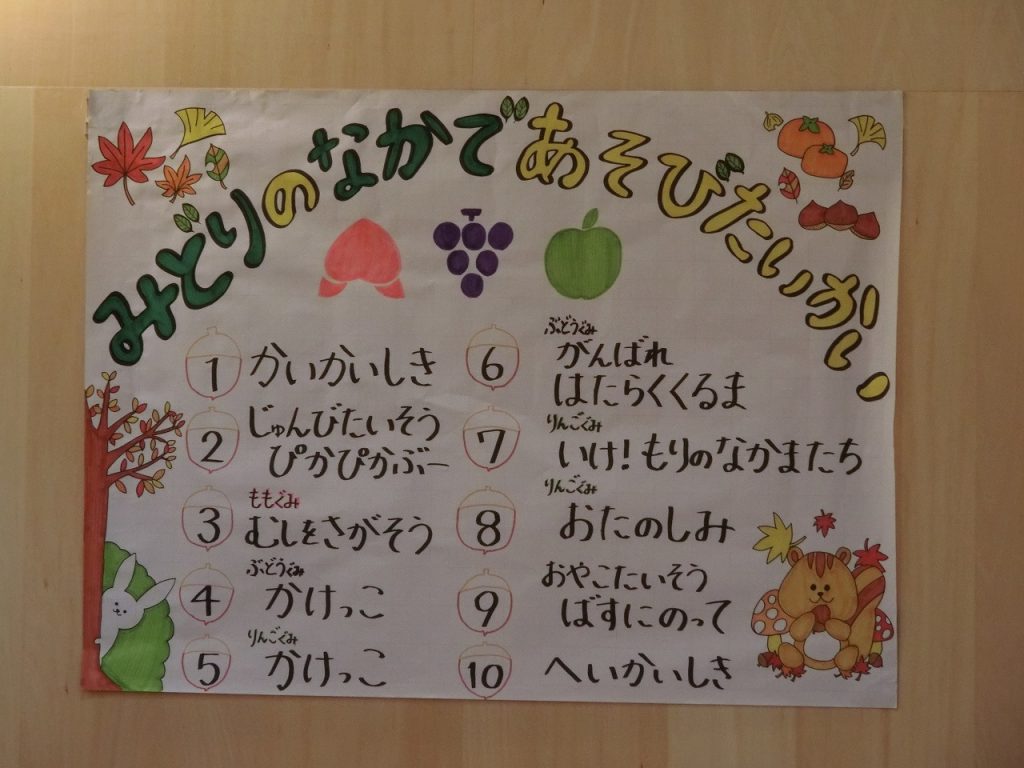 みどりのなかであそびたいかい
1 かいかいしき
2 じゅんびたいそう
ぴかぴかぶー
ももぐみ
3 むしをさがそう
ぶどうぐみ
4 かけっこ
りんごぐみ
5 かけっこ
ぶどうぐみ
6 がんばれ
はたらくくるま
りんごぐみ
7 いけ!もりのなかまたち
りんごぐみ
8 おたのしみ
9 おやこたいそう
ばすにのって
10 へいかいしき